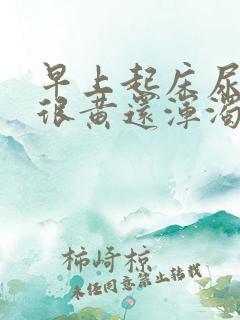 早上起床尿
很黄还浑浊
柿崎椋
未经同意禁止转载